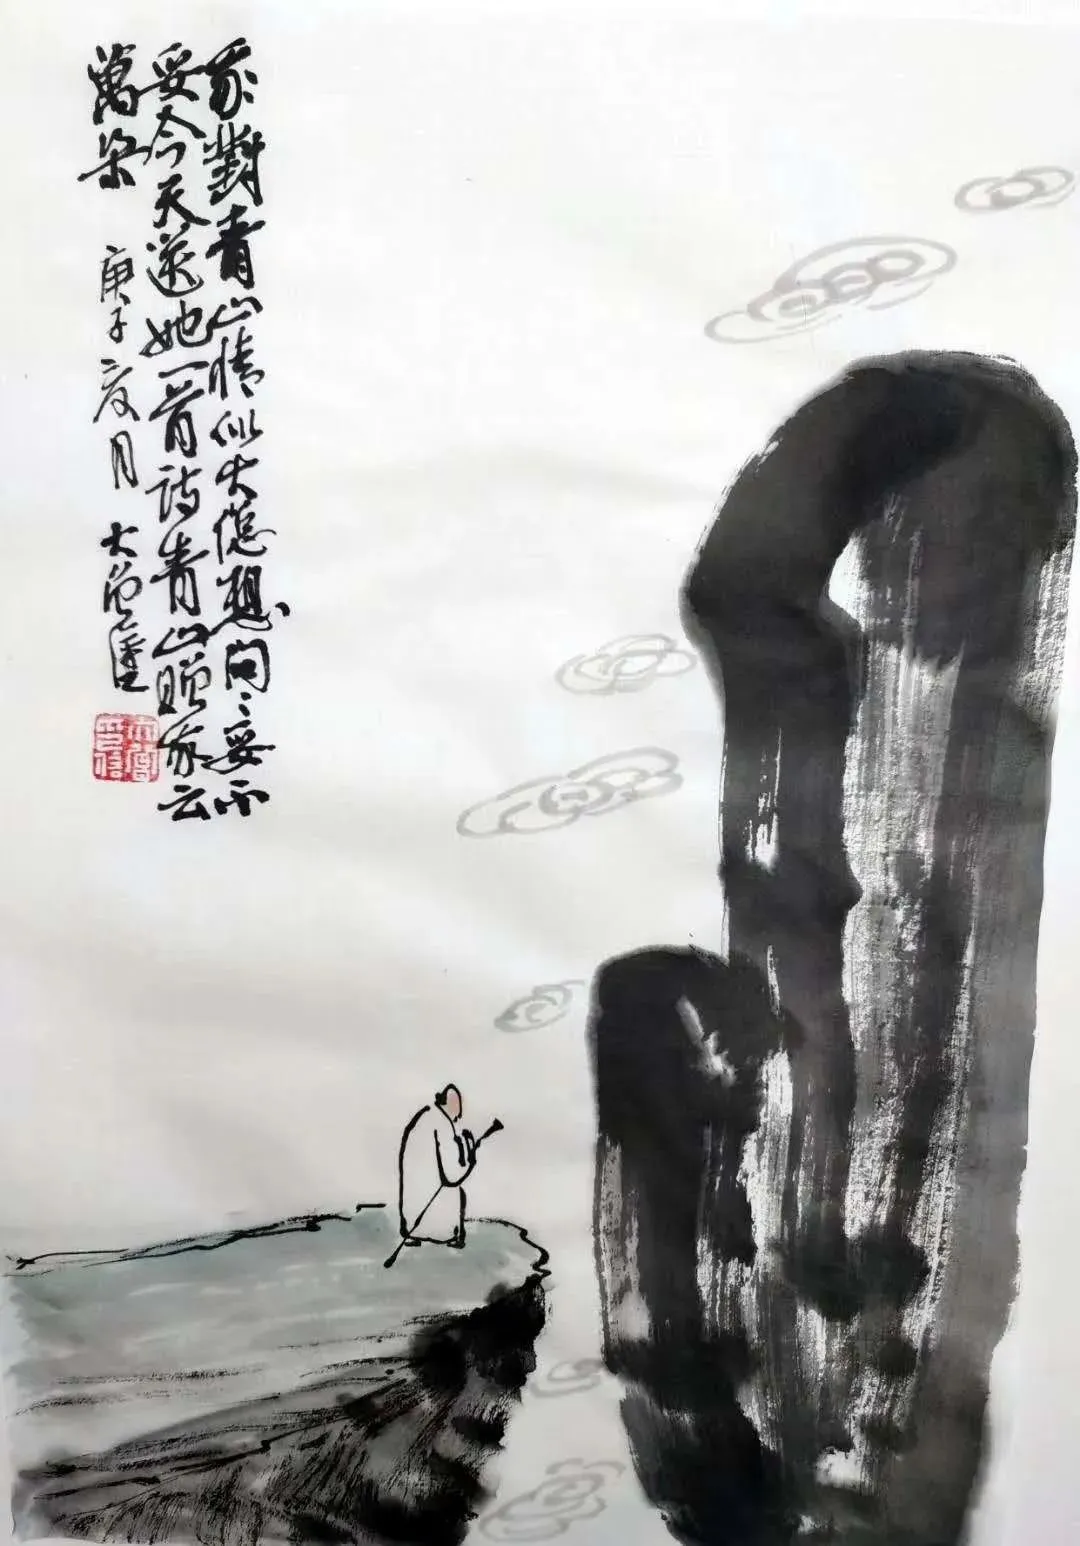 我對青山情似火總想問問妥不
妥今天送她一首詩青山贈我云
萬朵
庚子二月大